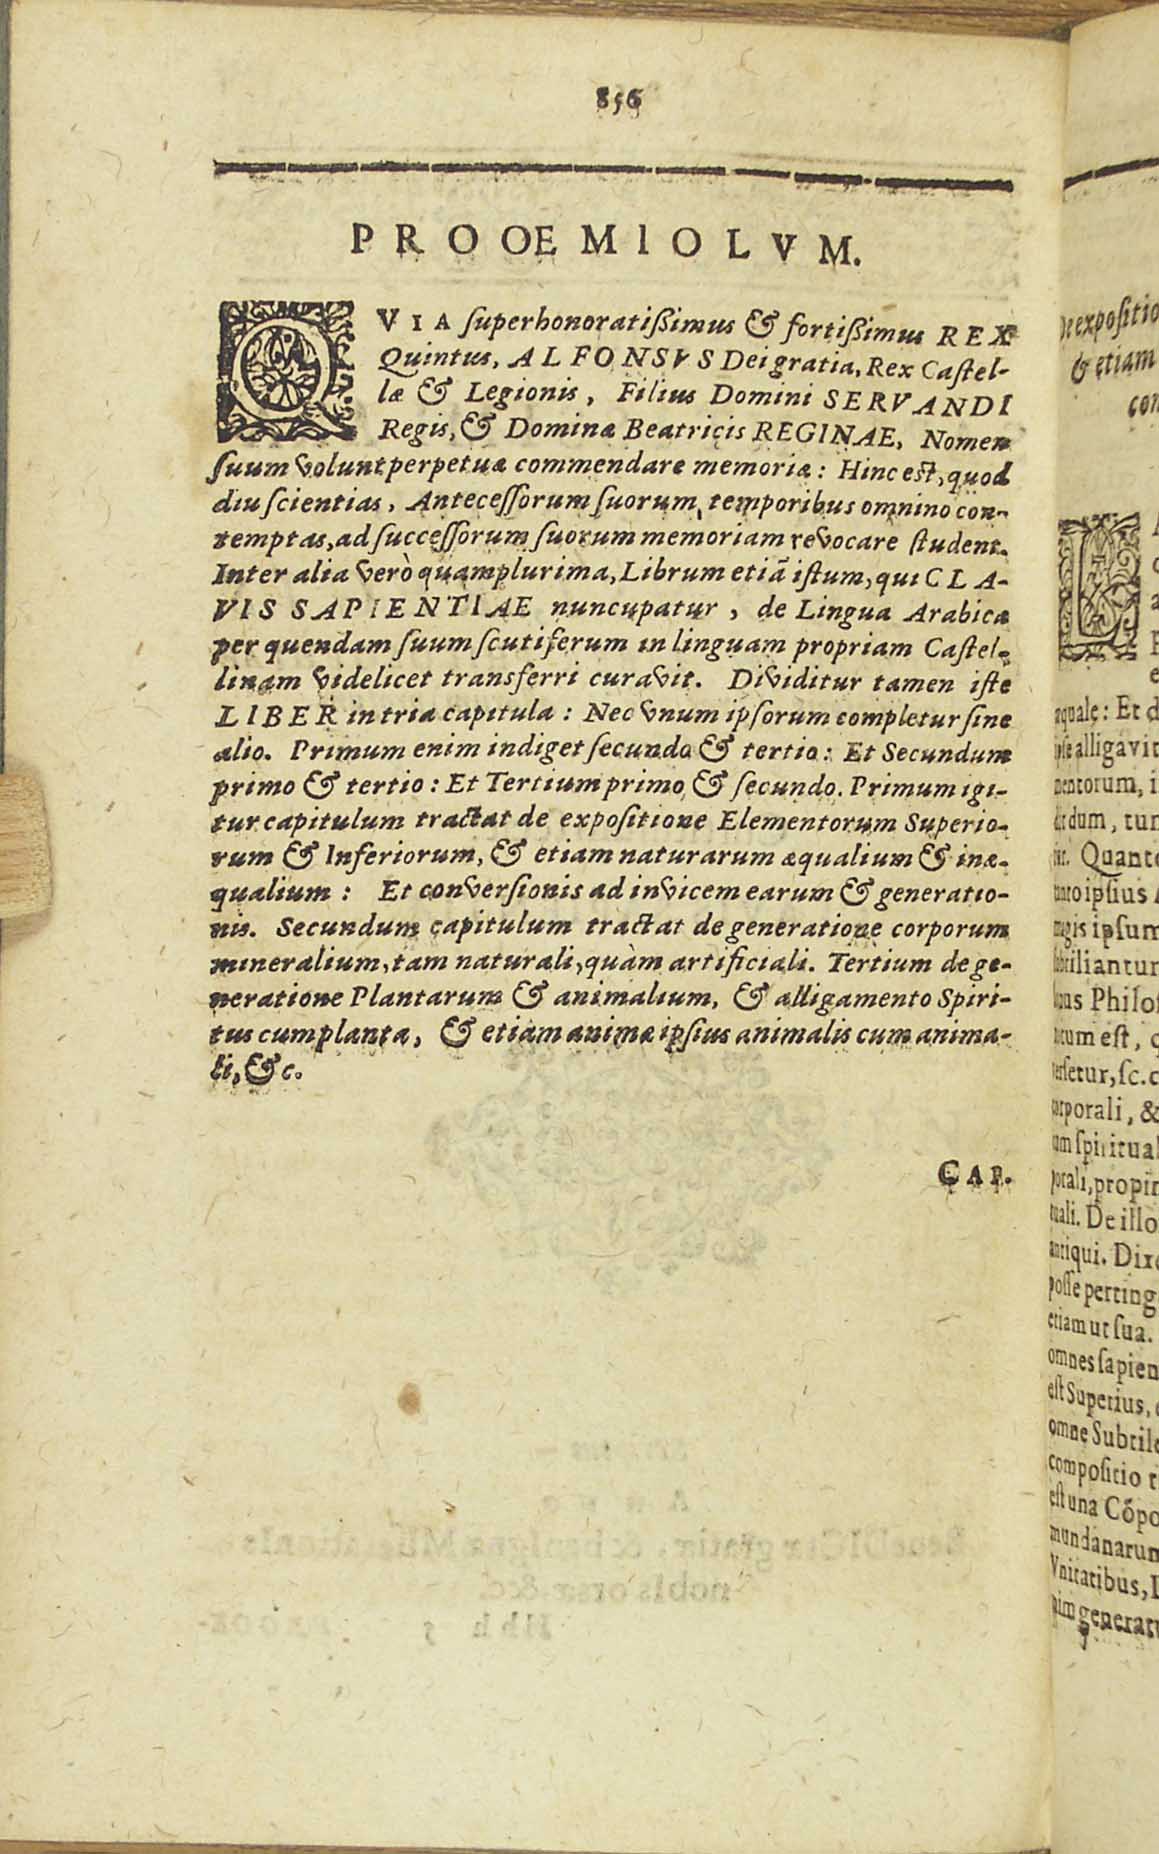 856
PROOEMIOLVM.
QVIA ſuperhonoratiſſimus & fortiſſimus REX
Quintus, ALFONSVS Dei gratia, Rex Caſtel-
læ & Legionis, Filius Domini SERVANDI
Regis, & Dominæ Beatricis REGINAE, Nomen
ſuum volunt perpetuæ commendare memoriæ: Hinc eſt, quod
diu ſcientias, Anteceſſorum ſuorum temporibus omnino con-
temptas, ad ſucceſſorum ſuorum memoriam revocare ſtudent.
Inter alia verò quamplurima, Librum etiā iſtum, qui CLA-
VIS SAPIENTIAE nuncupatur, de Lingua Arabica
per quendam ſuum ſcutiferum in linguam propriam Caſtel-
linam videlicet transferri curavit. Dividitur tamen iſte
LIBER in tria capitula: Nec vnum ipſorum completur ſine
alio. Primum enim indiget ſecundo & tertio: Et Secundum
primo & tertio: Et Tertium primo & ſecundo. Primum igi-
tur capitulum tractat de expoſitione Elementorum Superio-
rum & Inferiorum, & etiam naturarum æqualium & inæ-
qualium: Et converſionis ad invicem earum & generatio-
nis. Secundum capitulum tractat de generatione corporum
mineralium, tam naturali, quàm artificiali. Tertium de ge-
neratione Plantarum & animalium, & alligamento Spiri-
tus cum planta, & etiam animæ ipſius animalis cum anima-
li, &c.
CAP.
expoſitio
& etiam
con
æquale: Et d
ipſe alligavit
mentorum, i
dum, tum
Quanto
ipſius
magis ipſum
Philoſ
eſt, q
ſc. c
corporali, &
ſpiritual
propin
De illo
antiqui. Dixe
poſſe perting
etiam ut ſua.
omnes ſapien
eſt Superius,
omne Subtile
compoſitio
eſt una Cõpo
mundanarum
Vnitatibus,
generat